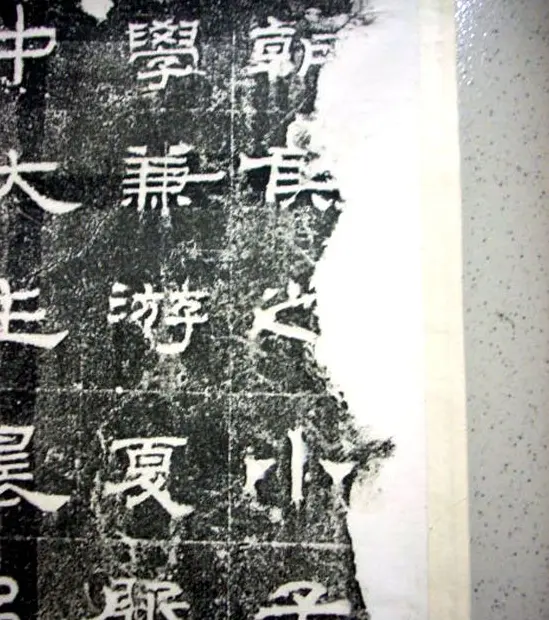 朝侯之小子
學兼游夏
中大